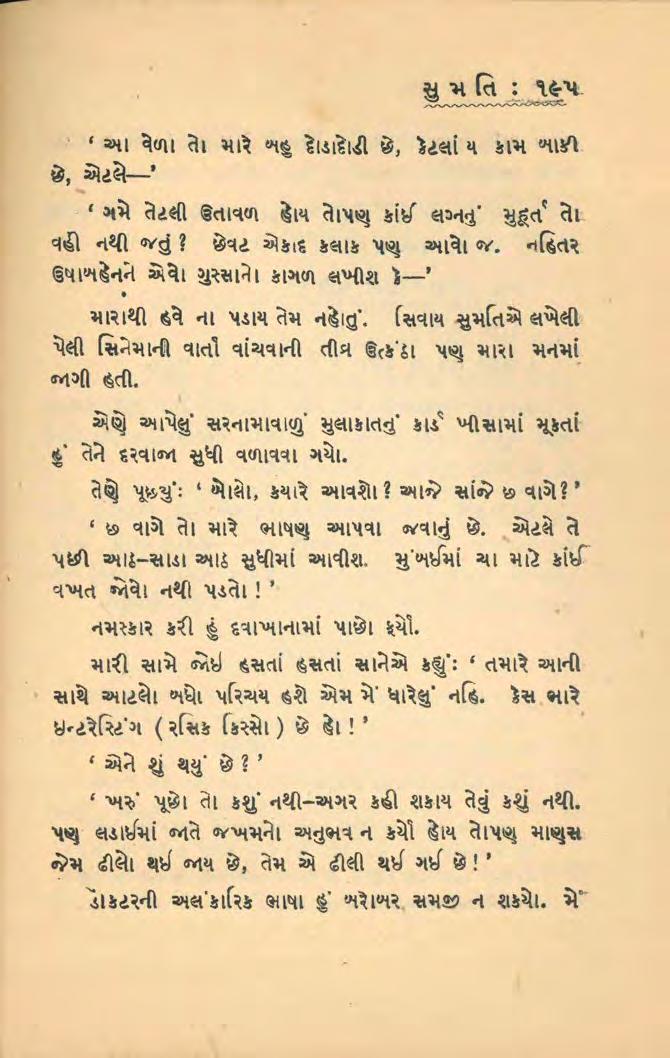 સુ મ તિ : ૧૯૫
‘ આ વેળા તો મારે બહુ દોડાદોડી છે, કેટલાં ય કામ બાકી
છે, એટલે—’
‘ ગમે તેટલી ઉતાવળ હોય તોપણ કાંઈ લગ્નનું મુહૂર્ત તો
વહી નથી જતું ? છેવટ એકાદ કલાક પણ આવો જ. નહિતર
ઉષાબહેનને એવો ગુસ્સાનો કાગળ લખીશ કે—’
મારાથી હવે ના પડાય તેમ નહોતું. સિવાય સુમતિએ લખેલી
પેલી સિનેમાની વાર્તા વાંચવાની તીવ્ર ઉત્કંઠા પણ મારા મનમાં
જાગી હતી.
એણે આપેલું સરનામાવાળું મુલાકાતનું કાર્ડ ખીસામાં મૂકતાં
હું તેને દરવાજા સુધી વળાવવા ગયો.
તેણે પૂછ્યું: ‘ બોલો, ક્યારે આવશો ? આજે સાંજે છ વાગે ? ’
‘ છ વાગે તો મારે ભાષણ આપવા જવાનું છે. એટલે તે
પછી આઠ–સાડા આઠ સુધીમાં આવીશ. મુંબઈમાં ચા માટે કાંઈ
વખત જોવો નથી પડતો ! ’
નમસ્કાર કરી હું દવાખાનામાં પાછો ફર્યો.
મારી સામે જોઈ હસતાં હસતાં સાનેએ કહ્યું: ‘ તમારે આની
સાથે આટલો બધો પરિચય હશે એમ મેં ધારેલું નહિ. કેસ ભારે
ઇન્ટરેસ્ટિંગ ( રસિક કિસ્સો ) છે હો ! ’
‘ એને શું થયું છે ? ’
‘ ખરું પૂછો તો કશું નથી–અગર કહી શકાય તેવું કશું નથી.
પણ લડાઈમાં જાતે જખમનો અનુભવ ન કર્યો હોય તોપણ માણસ
જેમ ઢીલો થઈ જાય છે, તેમ એ ઢીલી થઈ ગઈ છે ! ’
ડૉકટરની અલંકારિક ભાષા હું બરોબર સમજી ન શક્યો. મેં